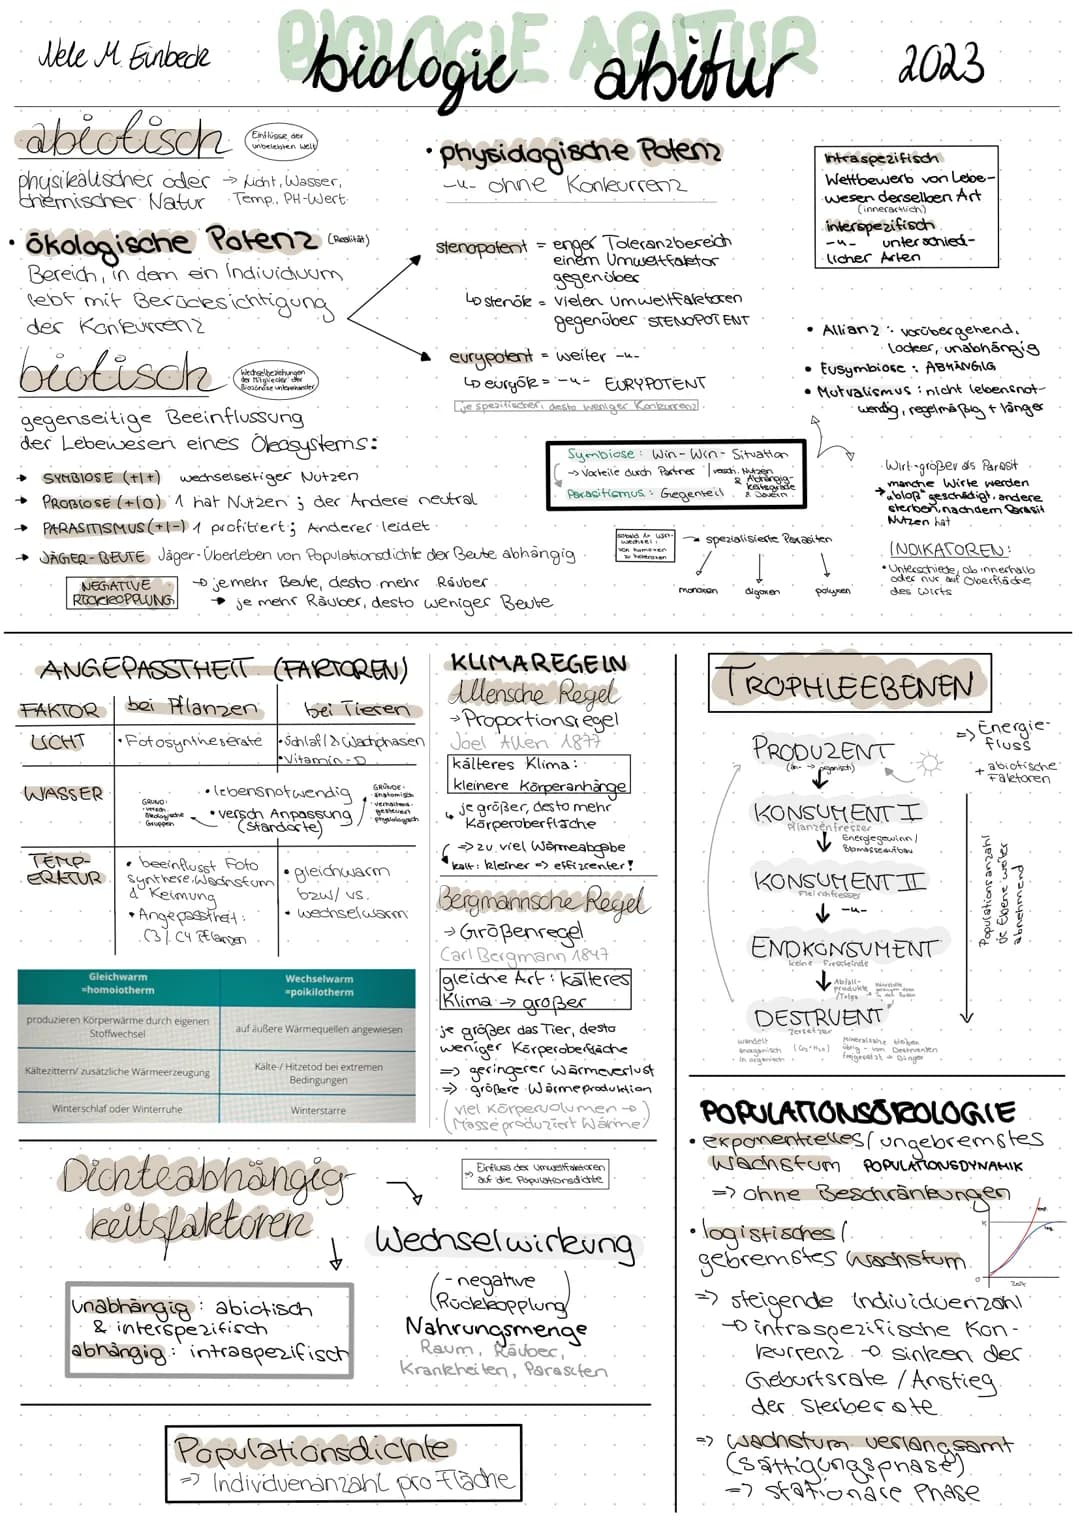 BIOLOGIE ABITUR
Nele M. Einbeck
biologie abitur
2023
abiotisch
Einflüsse der
unbelebten Welt
physikalischer oder → Licht, Wasser,
chemischer Natur Temp., PH-Wert
• ökologische Potenz (Realität)
Bereich, in dem ein Individuum
lebt mit Berücksichtigung
der Konkurrenz
• physiologische Potenz
-"- ohne Konkurrenz
stenopotent = enger Toleranzbereich
einem Umweltfaktor
gegenüber
↳ stenök = vielen Umweltfaktoren
gegenüber STENOPOTENT
eurypotent = weiter -"-
↳ euryök = -"- EURYPOTENT
je spezifischer, desto weniger Konkurrenz
intraspezifisch
Wettbewerb von Lebe-
wesen derselben Art
(innerartlich)
interspezifisch
-"- unterschied-
licher Arten
• Allianz : vorübergehend,
locker, unabhängig
• Eusymbiose : ABHÄNGIG
• Mutualismus : nicht lebensnot-
wendig, regelmäßig + länger
biotisch
Wechselbeziehungen
der Mitglieder der
Biozönose untereinander
gegenseitige Beeinflussung
der Lebewesen eines Ökosystems:
→ SYMBIOSE (+|+) wechselseitiger Nutzen
→ PROBIOSE (+|0) 1 hat Nutzen ; der Andere neutral
→ PARASITISMUS (+|-) 1 profitiert ; Anderer leidet
→ JÄGER-BEUTE Jäger-Überleben von Populationsdichte der Beute abhängig
NEGATIVE
RÜCKKOPPLUNG
→ je mehr Beute, desto mehr Räuber
→ je mehr Räuber, desto weniger Beute
Symbiose : Win-Win-Situation
→ Vorteile durch Partner / versch. Nutzen
& Abhängig-
keitsgrade
& Dauern
Parasitismus : Gegenteil
→ spezialisierte Parasiten
monoxen
digoxen
polyxen
- Wirt größer als Parasit
→ manche Wirte werden
"bloß" geschädigt, andere
sterben, nachdem Parasit
Nutzen hat
INDIKATOREN:
• Unterschiede, ob innerhalb
oder nur auf Oberfläche
des Wirts
ANGEPASSTHEIT (FAKTOREN)
FAKTOR bei Pflanzen bei Tieren
LICHT • Fotosyntheserate • Schlaf/& Wachphasen
• Vitamin-D
WASSER • lebensnotwendig
• versch Anpassung
(Standorte)
GRUND:
versch.
ökologische
Gruppen
GRÜNDE:
anatomisch
verhaltens-
gesteuert
physiologisch
TEMP-
ERATUR
• beeinflusst Foto
synthese, Wachstum
& Keimung
• Angepasstheit:
C3/ C4 Pflanzen
• gleichwarm
bzw/ vs.
• wechselwarm
Gleichwarm
=homoiotherm
Wechselwarm
=poikilotherm
produzieren Körperwärme durch eigenen
Stoffwechsel
auf äußere Wärmequellen angewiesen
Kältezittern/ zusätzliche Wärmeerzeugung
Kälte-/ Hitzetod bei extremen
Bedingungen
Winterschlaf oder Winterruhe
Winterstarre
KLIMAREGELN
Allensche Regel
→ Proportionsregel
Joel Allen 1877
kälteres Klima:
kleinere Körperanhänge
↳ je größer, desto mehr
Körperoberfläche
=> zu viel Wärmeabgabe
kalt: kleiner => effizienter!
Bergmannsche Regel
→ Größenregel
Carl Bergmann 1847
gleiche Art : kälteres
Klima → größer
je größer das Tier, desto
weniger Körperoberfläche
=> geringerer Wärmeverlust
=> größere Wärmeproduktion
(viel Körpervolumen →
Masse produziert Wärme)
TROPHIEEBENEN
PRODUZENT
(an- → organisch)
=> Energie-
fluss
+ abiotische
Faktoren
KONSUMENT I
Pflanzenfresser
Energiegewinn/
Biomasseaufbau
KONSUMENT II
Fleischfresser
-"-
ENDKONSUMENT
keine Fressfeinde
Abfall-
produkte
/Totes
DESTRUENT
Zersetzer
wandelt
anorganisch
in organisch
Mineralische bleiben
übrig - von Destruenten
freigesetzt → Dünger
Populationsanzahl
die Ebene weiter
abnehmend
Dichteabhängig-
keitsfaktoren
→ Einfluss der Umweltfaktoren
auf die Populationsdichte
unabhängig : abiotisch
& interspezifisch
abhängig : intraspezifisch
Wechselwirkung
(- negative
Rückkopplung)
Nahrungsmenge
Raum, Räuber,
Krankheiten, Parasiten
Populationsdichte
=> Individuenanzahl pro Fläche
POPULATIONSÖKOLOGIE
• exponentielles/ ungebremstes
Wachstum POPULATIONSDYNAMIK
=> ohne Beschränkungen
• logistisches /
gebremstes Wachstum
K
exp.
log.
0
Zeit
=> steigende Individuenzahl
→ intraspezifische Kon-
kurrenz → sinken der
Geburtsrate / Anstieg
der Sterberate
=> Wachstum verlangsamt
(Sättigungsphase)
=> stationäre Phase